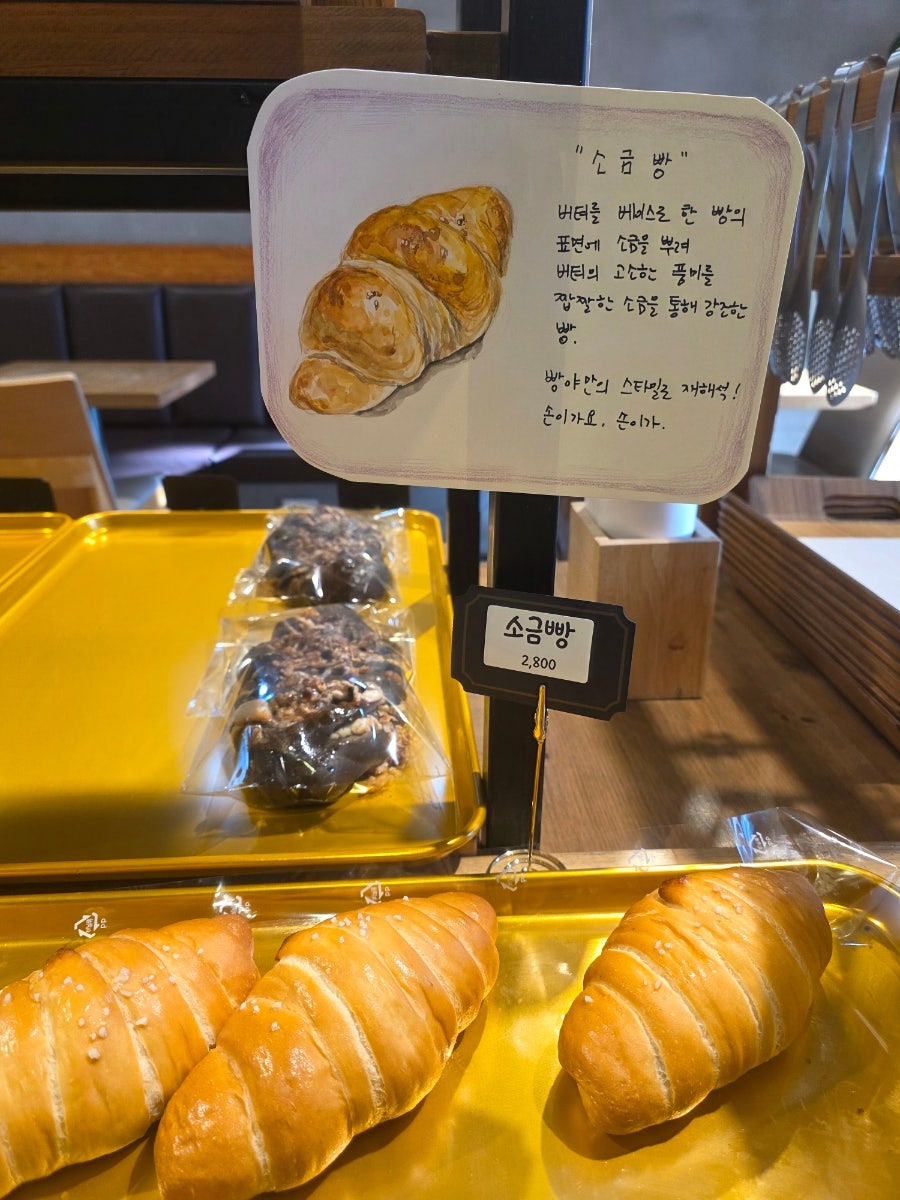 "소금빵"
버터를 베이스로 한 빵의
표면에 소금을 뿌려
버터의 고소한 풍미를
짭짤한 소금을 통해 강조한
빵.
빵야만의 스타일로 재해석!
손이가요, 손이가.
소금빵
2,800